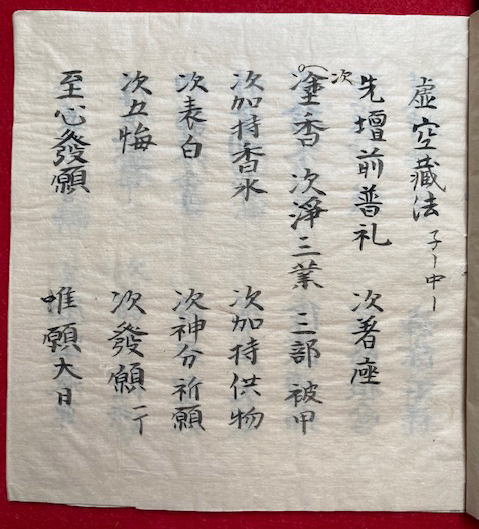 虚空蔵法 子ー中ー
先壇前普礼 次著座
次塗香 次淨三業 三部 被甲
次加持香水 次加持供物
次表白 次神分祈願
次五悔 次發願
至心發願 唯願大日